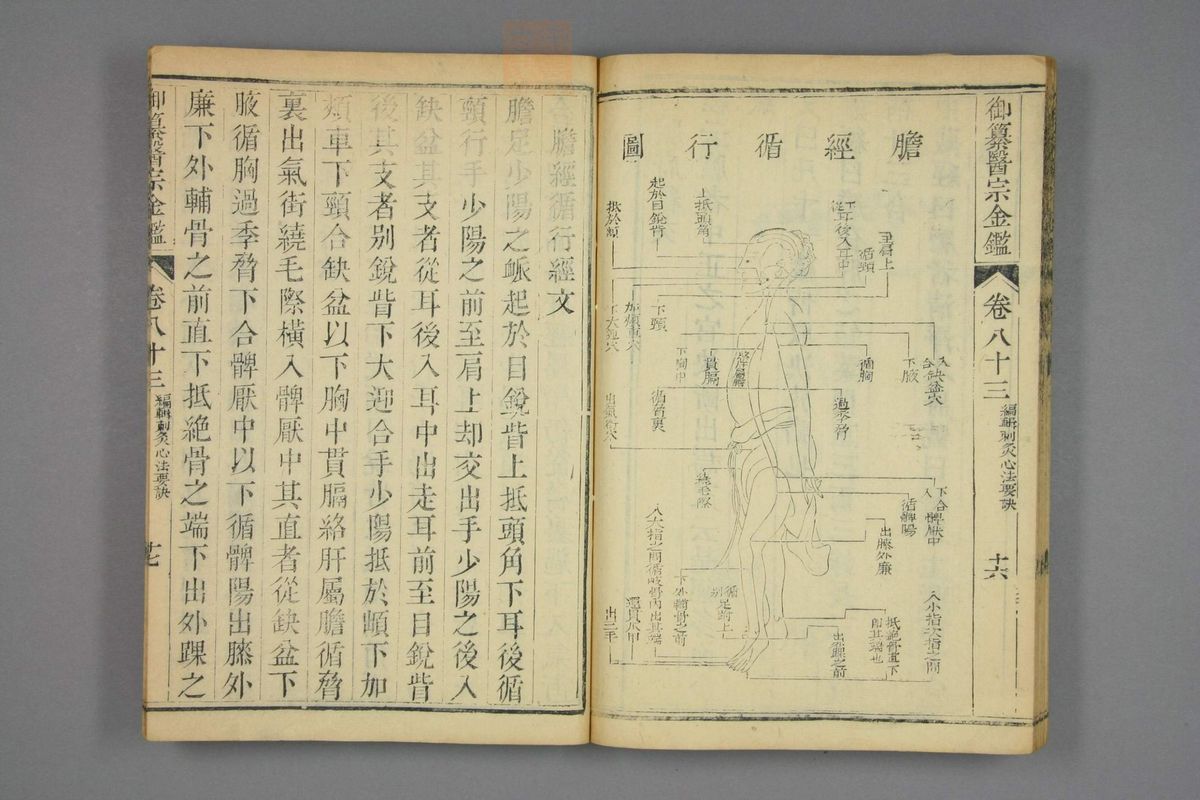 御纂醫宗金鑑
卷八十三
編輯刺灸心法要訣
十六
膽經循行圖
至肩上
循頸
從耳後入耳中
上抵頭角
起於目銳眥
抵於䪼
下頸
加頰車穴
下大迎穴
入缺盆穴
合
下腋
循胸
過季脅
絡肝屬膽
貫膈
下胸中
循脅裏
出氣街穴
繞毛際
下合髀厭中
入
循髀陽
出膝外廉
下外輔骨之前
抵絕骨直下
即其端也
出外踝之前
循足跗上
別
入小指次指之間
入大指之間循歧骨內出其端
還貫爪甲
出三毛
膽經循行經文
膽足少陽之脈起於目銳眥上抵頭角下耳後循
頸行手少陽之前至肩上却交出手少陽之後入
缺盆其支者從耳後入耳中出走耳前至目銳眥
後其支者别銳眥下大迎合手少陽抵於䪼下加
頰車下頸合缺盆以下胸中貫膈絡肝屬膽循脅
裏出氣街繞毛際橫入髀厭中其直者從缺盆下
腋循胸過季脅下合髀厭中以下循髀陽出膝外
廉下外輔骨之前直下抵絶骨之端下出外踝之
御纂醫宗金鑑
卷八十三
編輯刺灸心法要訣
十七